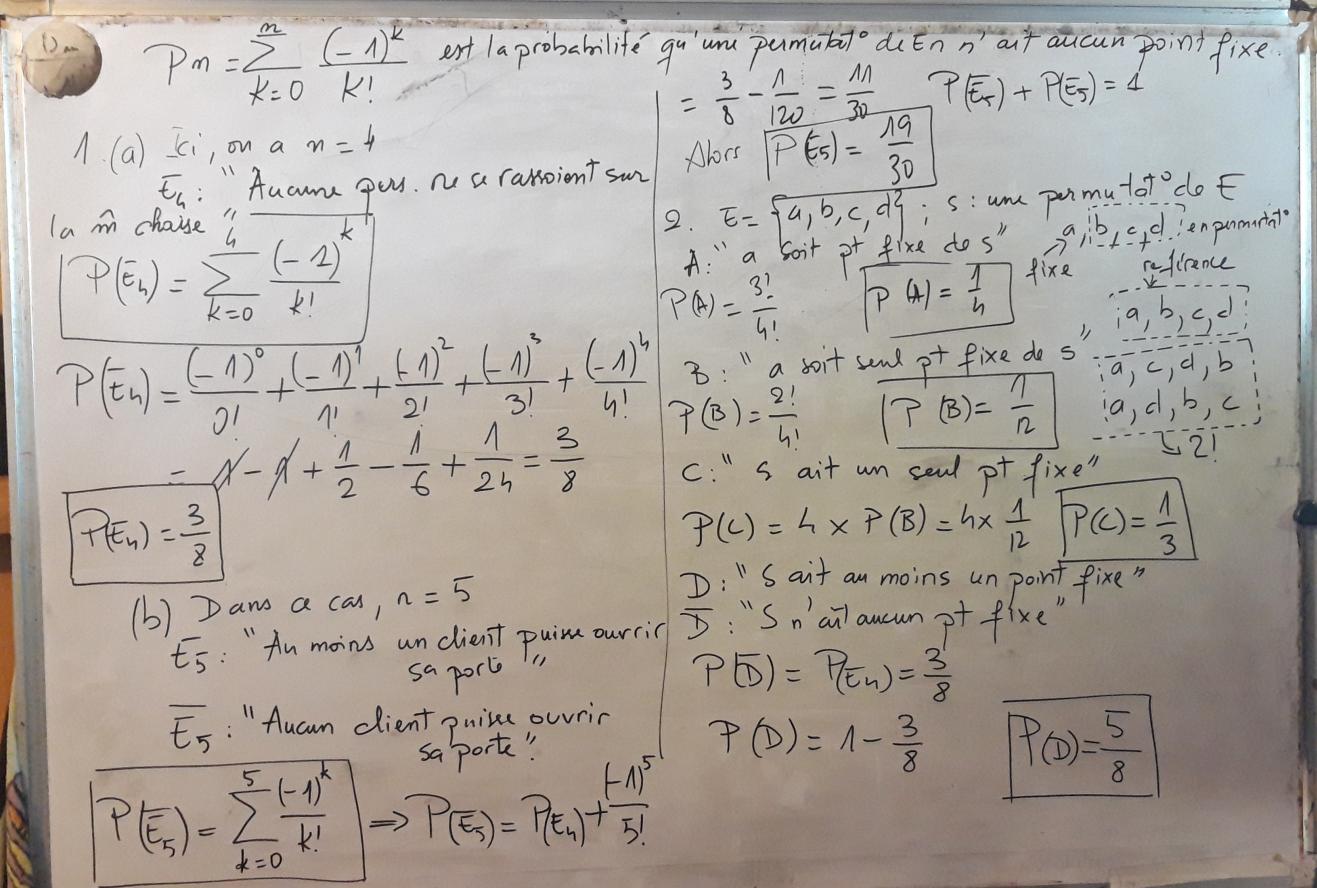 Pn = \sum_{k=0}^{n} \frac{(-1)^k}{k!} est la probabilité qu'une permutat° de En n'ait aucun point fixe.
1. (a) Ici, on a n = 4
\overline{E}_4 : "Aucune pers. ne se rassoient sur
la m̂ chaise"
P(\overline{E}_4) = \sum_{k=0}^{4} \frac{(-1)^k}{k!}
P(\overline{E}_4) = \frac{(-1)^0}{0!} + \frac{(-1)^1}{1!} + \frac{(-1)^2}{2!} + \frac{(-1)^3}{3!} + \frac{(-1)^4}{4!}
= 1 - 1 + \frac{1}{2} - \frac{1}{6} + \frac{1}{24} = \frac{3}{8}
P(\overline{E}_4) = \frac{3}{8}
(b) Dans ce cas, n = 5
E_5 : "Au moins un client puisse ouvrir
sa porte"
\overline{E_5} : "Aucun client puisse ouvrir
sa porte".
P(\overline{E}_5) = \sum_{k=0}^{5} \frac{(-1)^k}{k!} => P(\overline{E}_5) = P(\overline{E}_4) + \frac{(-1)^5}{5!}
= \frac{3}{8} - \frac{1}{120} = \frac{11}{30} P(\overline{E}_5) + P(E_5) = 1
Alors P(E_5) = \frac{19}{30}
2. E = {a, b, c, d} ; s : une permutat° de E
A : "a soit pt fixe de s"
a, b, c, d en permutat°
fixe
P(A) = \frac{3!}{4!} P(A) = \frac{1}{4}
référence
a, b, c, d
B : "a soit seul pt fixe de s"
a, c, d, b
a, d, b, c
2!
P(B) = \frac{2!}{4!} P(B) = \frac{1}{12}
C : "s ait un seul pt fixe"
P(C) = 4 x P(B) = 4x \frac{1}{12} P(C) = \frac{1}{3}
D : "S ait au moins un point fixe"
\overline{D} : "S n'ait aucun pt fixe"
P(\overline{D}) = P(\overline{E}_4) = \frac{3}{8}
P(D) = 1 - \frac{3}{8} P(D) = \frac{5}{8}